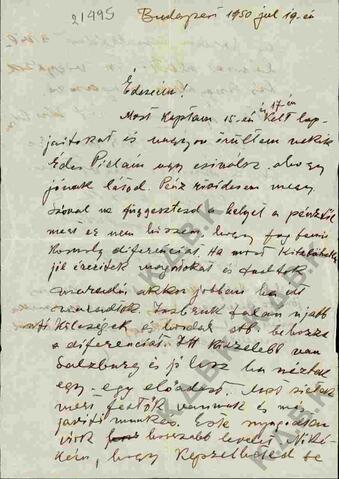 21495
Budapest 1950 jul 19-én
Édeseim!
Most kaptam 15-én és 17-én kelt lap-
jaitokat és nagyon örültem nekik
Édes Pielam úgy csinálsz ahogy
jónak látod. Pénz miatt
ne függeszd a helyet a pénztől
mert ez nem hiszem hogy fog lenni
komoly diferenciát Ha most
jól érzitek magatokat és tudtok
maradni akkor jobban ha ott
maradtok. Insbruk talán újabb
költségek és hordár ott behozza
a diferenciát. Itt közelebb van
Salzburg és jó lesz ha néztek
egy-egy előadást. Most sietek
mert festők vannak és még
javító munkás. Este nyugodtan
írok hosszabb levelet
hogy képzelheted be
H.A.B.I.K